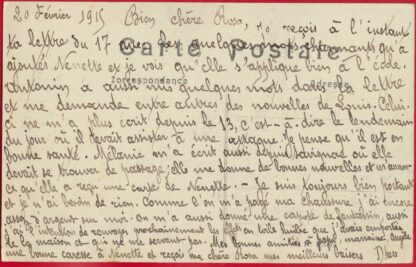 20 Février 1915 Bien chère Rosa,
Je reçois à l'instant
ta lettre du 17 avec les quelques mots charmants qu'a
Carte Postale
ajoutés Nenette et je vois qu'elle s'applique bien à l'école.
Correspondance
Adresse
Antonin a aussi mis quelques mots dans la lettre
et me demande entre autres des nouvelles de Louis. Celui-
ci ne m'a plus écrit depuis le 13, c'est-à-dire le lendemain
du jour où il devait assister à une attaque. Je pense qu'il est en
bonne santé. Mélanie m'a écrit aussi depuis où elle
devait se trouver de passage; elle me donne de bonnes nouvelles et
ce qu'elle a reçu une carte de Nenette - Je suis toujours bien portant
et je n'ai besoin de rien. Comme l'on m'a payé ma chaussure j'ai encore
assez d'argent sur moi. On m'a aussi donné une capote de fantassin, aussi
j'ai l'intention de renvoyer prochainement les effets en toile huilée que j'avais emportés
de la maison et qui ne me servent pas. Mes bonnes amitiés à papa, marraine,
une bonne caresse à Nenette et reçois ma chère Rosa mes meilleurs baisers